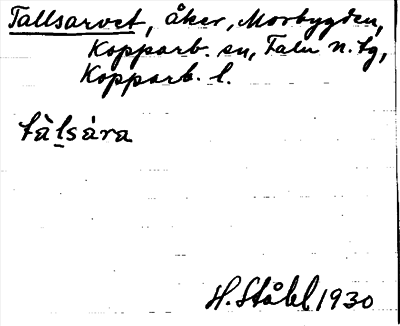 Tallsarvet, åker, Morbygden,
Kopparb. sn, Falu n. tg,
Kopparb. l.
tàlsára
H. Ståhl 1930